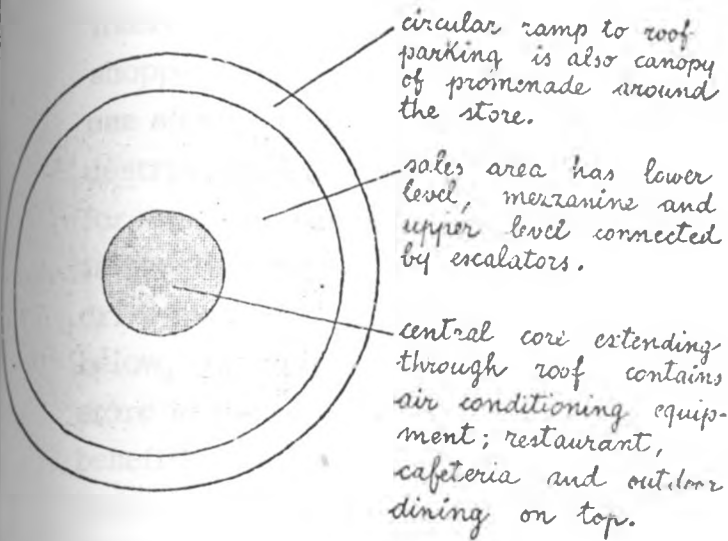 circular ramp to roof
parking is also canopy
of promenade around
the store.
sales area has lower
level, mezzanine and
upper level connected
by escalators.
central core extending
through roof contains
air conditioning equip-
ment; restaurant,
cafeteria and outdoor
dining on top.